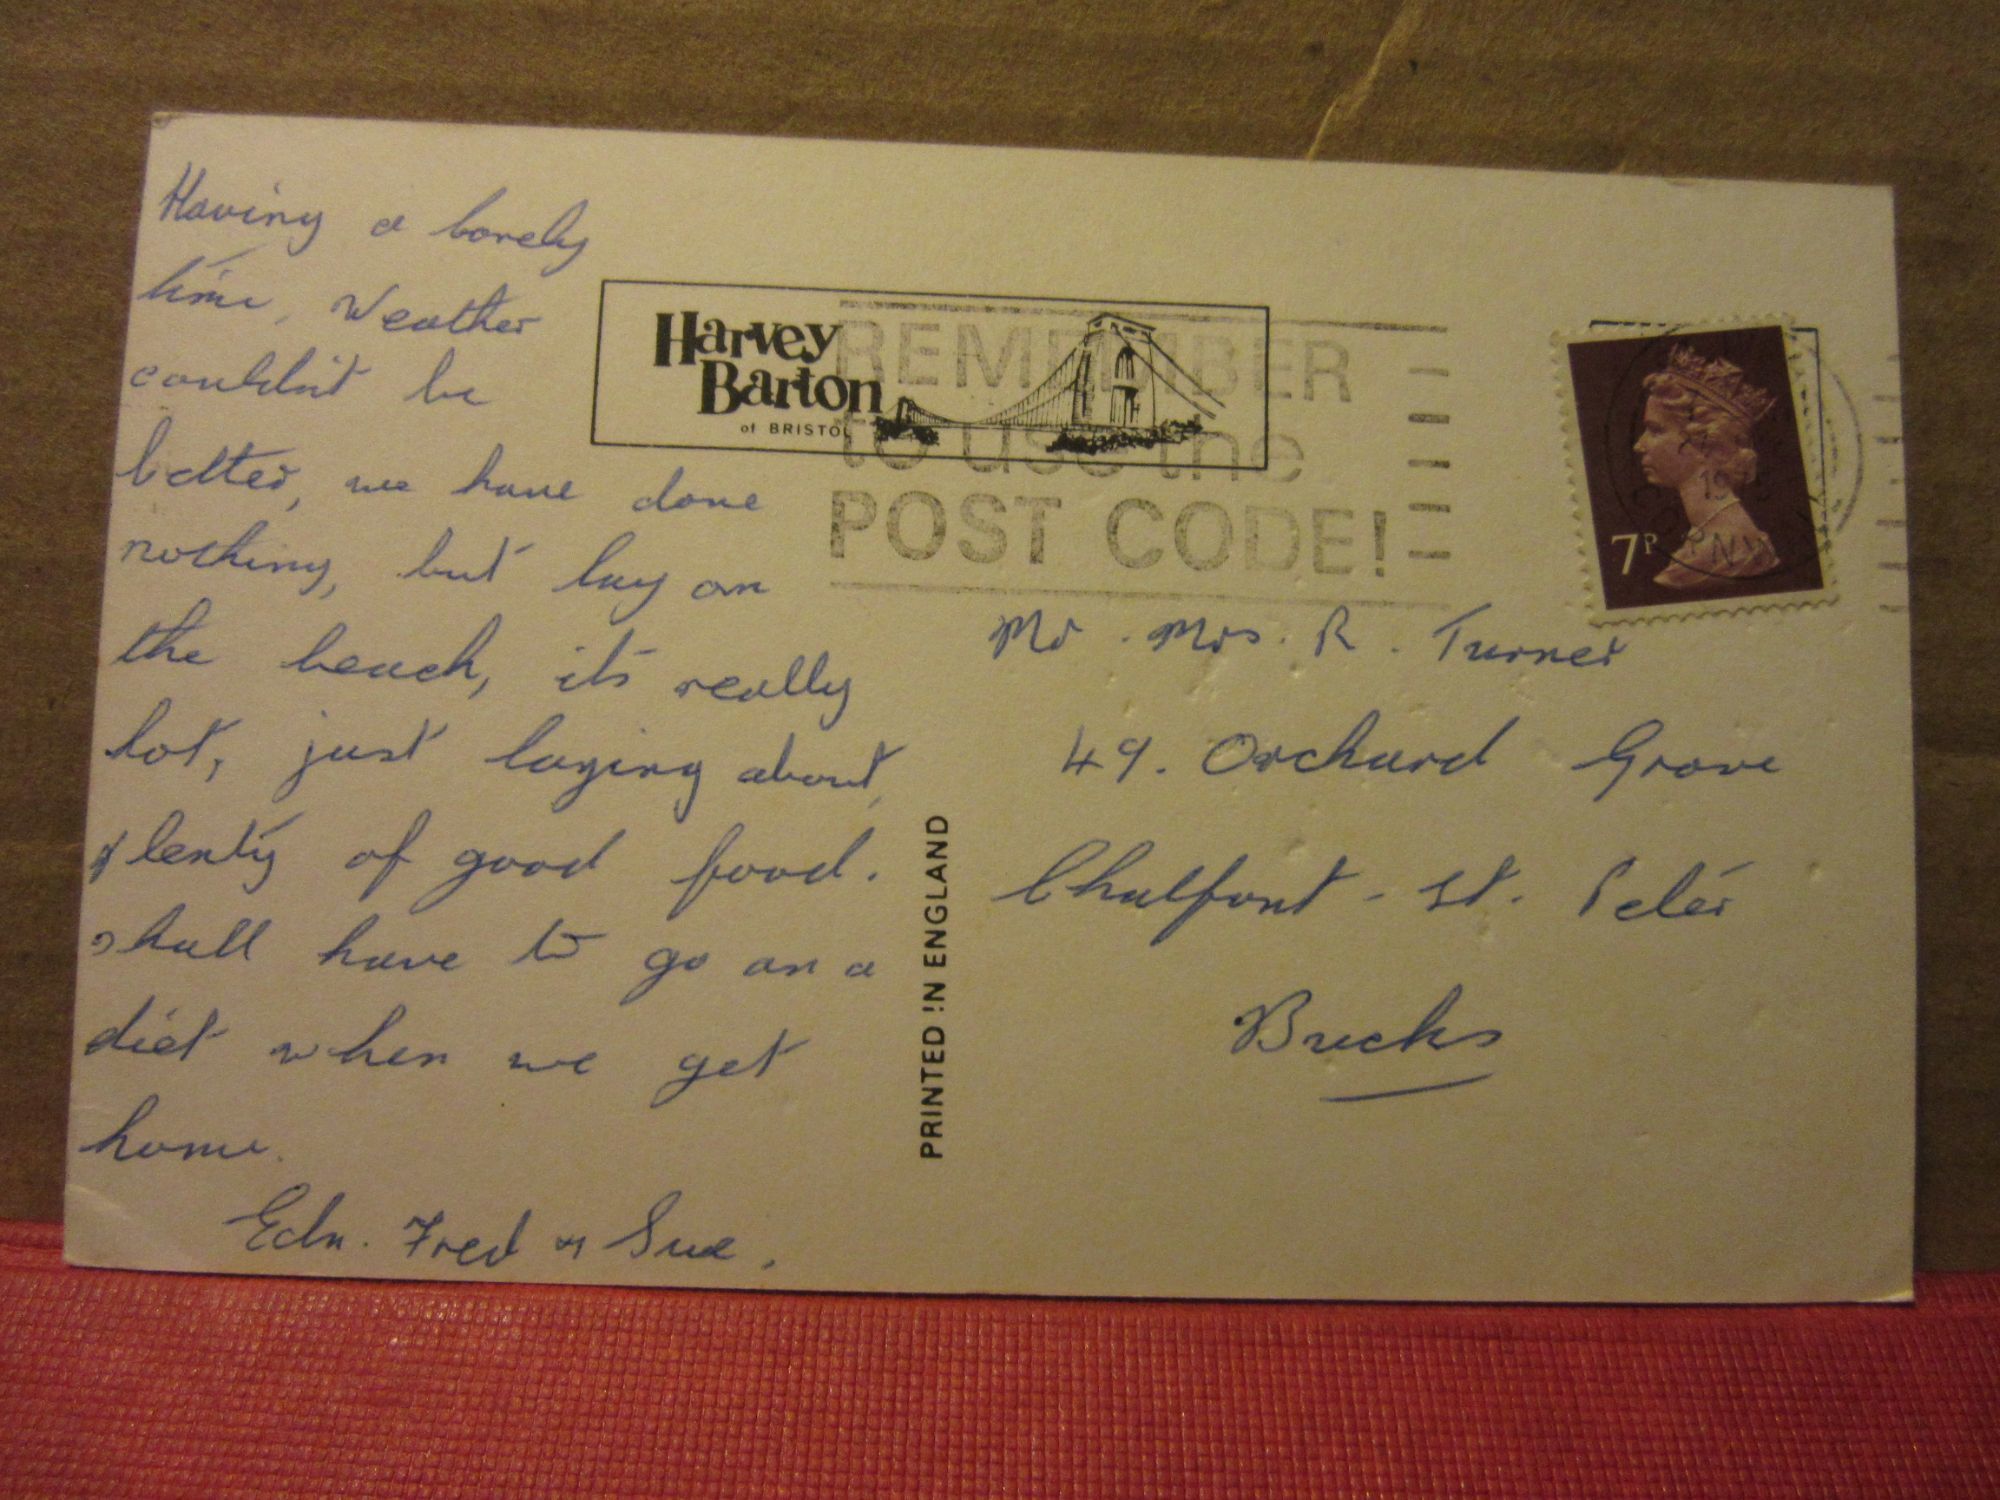 Having a lovely
time, Weather
couldn't be
better, we have done
nothing, but lay on
the beach, it's really
hot, just laying about,
plenty of good food.
shall have to go on a
diet when we get
home.
Edn. Fred & Sue.
Harvey
Barton
of BRISTOL
REMEMBER
to use the
POST CODE!
7P
Mr. Mrs. R. Turner
49. Orchard Grove
Chalfont - St. Peter
Bucks
PRINTED IN ENGLAND